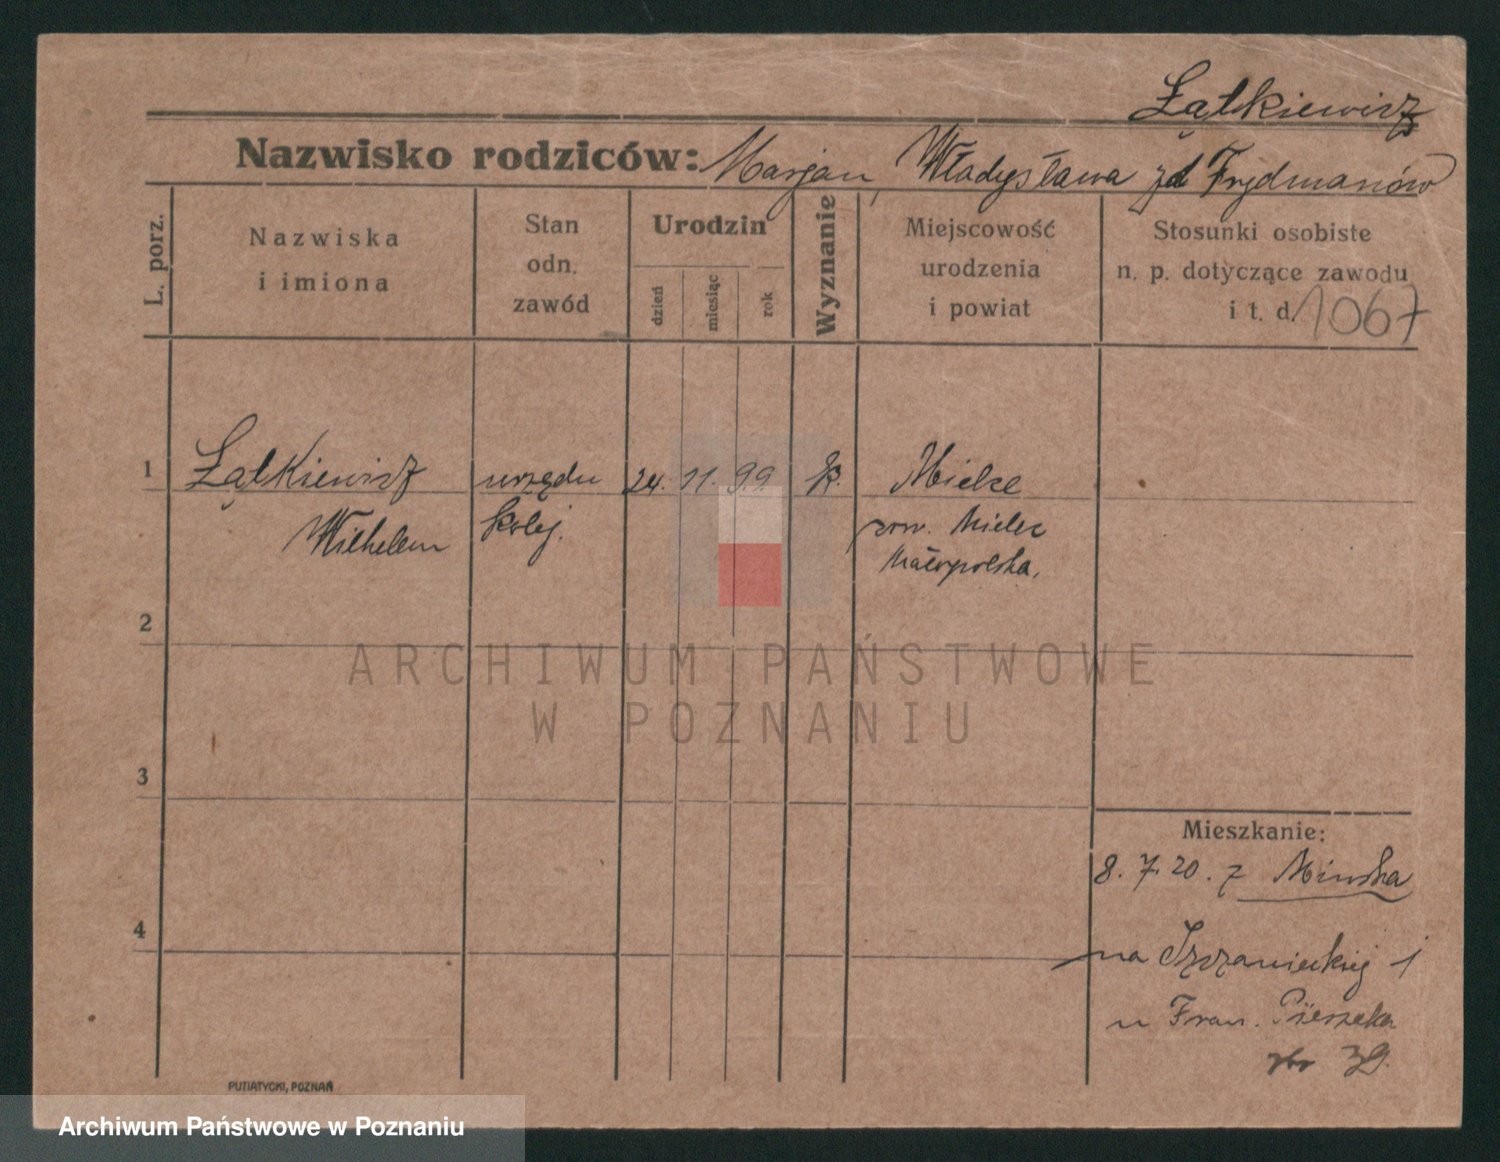 Żątkiewicz
Nazwisko rodziców: Marjan, Władysława zd Frydmanów
L. porz.
Nazwiska
i imiona
Stan
odn.
zawód
Urodzin
dzień
miesiąc
rok
Wyznanie
Miejscowość
urodzenia
i powiat
Stosunki osobiste
n. p. dotyczące zawodu
i t. d.
1067
1 Żątkiewicz urzędn 24. 11. 99. k. Mielce
Wilhelem kolej. pow. Mielec
Małopolska.
2
ARCHIWUM PAŃSTWOWE
W POZNANIU
3
Mieszkanie:
8. 7. 20. z Minska
4
na Szczanieckiej 1
u Fran.
39.
PUTIATYCKI, POZNAŃ
Archiwum Państwowe w Poznaniu